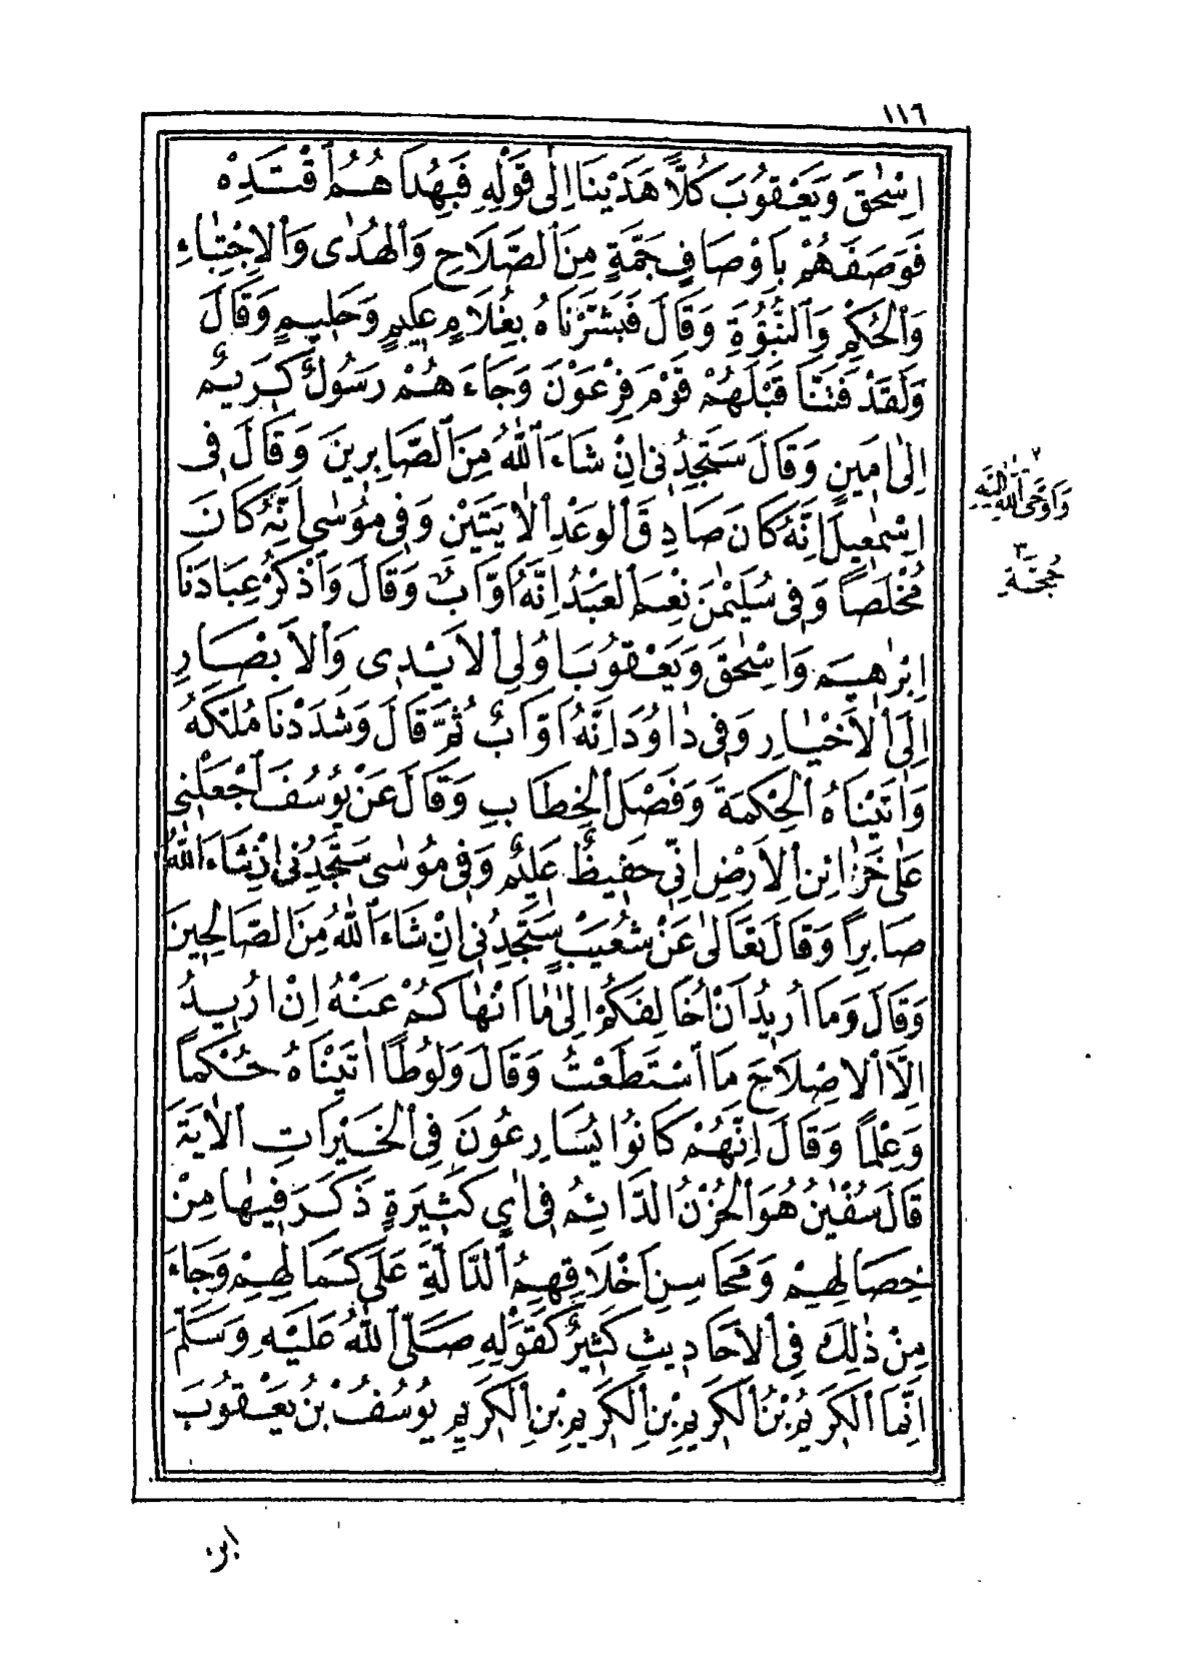 ١١٦
اِسْحٰقَ وَيَعْقُوبَ كُلًّا هَدَيْنَا اِلٰى قَوْلِهِ فَبِهُدَا هُمُ ٱقْتَدِهْ
فَوَصَفَهُمْ بِاَوْصَافٍ جَمَّةٍ مِنَ ٱلصَّلَاحِ وَٱلْهُدٰى وَٱلْاِجْتِبٰاءِ
وَٱلْحُكْمِ وَٱلنُّبُوَّةِ وَقَالَ فَبَشَّرْنَاهُ بِغُلَامٍ عَلِيمٍ وَحَلِيمٍ وَقَالَ
وَلَقَدْ فَتَنَّا قَبْلَهُمْ قَوْمَ فِرْعَوْنَ وَجَاءَ هُمْ رَسُولٌ كَرِيمٌ
اِلٰى اَمِينٍ وَقَالَ سَتَجِدُنِى اِنْ شَاءَ ٱللّٰهُ مِنَ ٱلصَّابِرِينَ وَقَالَ فِى
اِسْمٰعِيلَ اِنَّهُ كَانَ صَادِقَ ٱلْوَعْدِ ٱلْاٰيَتَيْنِ وَفِى مُوسٰى اِنَّهُ كَانَ
مُخْلَصًا وَفِى سُلَيْمٰنَ نِعْمَ ٱلْعَبْدُ اِنَّهُ اَوَّابٌ وَقَالَ وَٱذْكُرْ عِبَادَنَا
اِبْرٰهِيمَ وَاِسْحٰقَ وَيَعْقُوبَ اُولِى ٱلْاَيْدِى وَٱلْاَبْصَارِ
اِلَى ٱلْاَخْيَارِ وَفِى دَاوُدَ اِنَّهُ اَوَّابٌ ثُمَّ قَالَ وَشَدَدْنَا مُلْكَهُ
وَاٰتَيْنَاهُ ٱلْحِكْمَةَ وَفَصْلَ ٱلْخِطَابِ وَقَالَ عَنْ يُوسُفَ ٱجْعَلْنِى
عَلٰى خَزَائِنِ ٱلْاَرْضِ اِنِّى حَفِيظٌ عَلِيمٌ وَفِى مُوسٰى سَتَجِدُنِى اِنْ شَاءَ ٱللّٰهُ
صَابِرًا وَقَالَ تَعَالٰى عَنْ شُعَيْبٍ سَتَجِدُنِى اِنْ شَاءَ ٱللّٰهُ مِنَ ٱلصَّالِحِينَ
وَقَالَ وَمَا اُرِيدُ اَنْ اُخَالِفَكُمْ اِلٰى مَا اَنْهَاكُمْ عَنْهُ اِنْ اُرِيدُ
اِلَّا ٱلْاِصْلَاحَ مَا ٱسْتَطَعْتُ وَقَالَ وَلُوطًا اٰتَيْنَاهُ حُكْمًا
وَعِلْمًا وَقَالَ اِنَّهُمْ كَانُوا يُسَارِعُونَ فِى ٱلْخَيْرَاتِ ٱلْاٰيَةَ
قَالَ سُفْيٰنُ هُوَ ٱلْحُزْنُ الدَّائِمُ فِى اٰىٍ كَثِيرَةٍ ذَكَرَ فِيهَا مِنْ
خِصَالِهِمْ وَمَحَاسِنِ اَخْلَاقِهِمُ ٱلدَّالَّةِ عَلٰى كَمَالِهِمْ وَجَاءَ
مِنْ ذٰلِكَ فِى ٱلْاَحَادِيثِ كَثِيرٌ كَقَوْلِهِ صَلَّى ٱللّٰهُ عَلَيْهِ وَسَلَّمَ
اِنَّمَا ٱلْكَرِيمُ بْنُ ٱلْكَرِيمِ بْنِ ٱلْكَرِيمِ بْنِ ٱلْكَرِيمِ يُوسُفُ بْنُ يَعْقُوبَ
٢
وَاَوْحَى ٱللّٰهُ اِلَيْهِ
٣
حُجَّةٍ
ابن